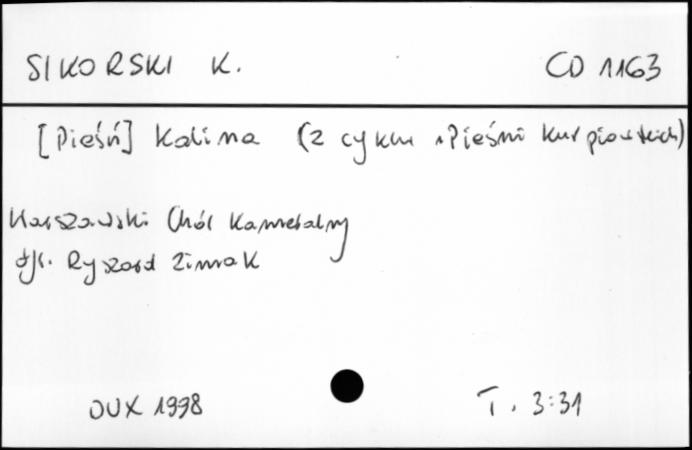 SIKORSKI K. CD 1163
[Pieśń] Kalina (z cyklu "Pieśni Kurpiowskich)
Warszawski Chór Kameralny
dyr. Ryszard Zimak
DUX 1998 T. 3:31